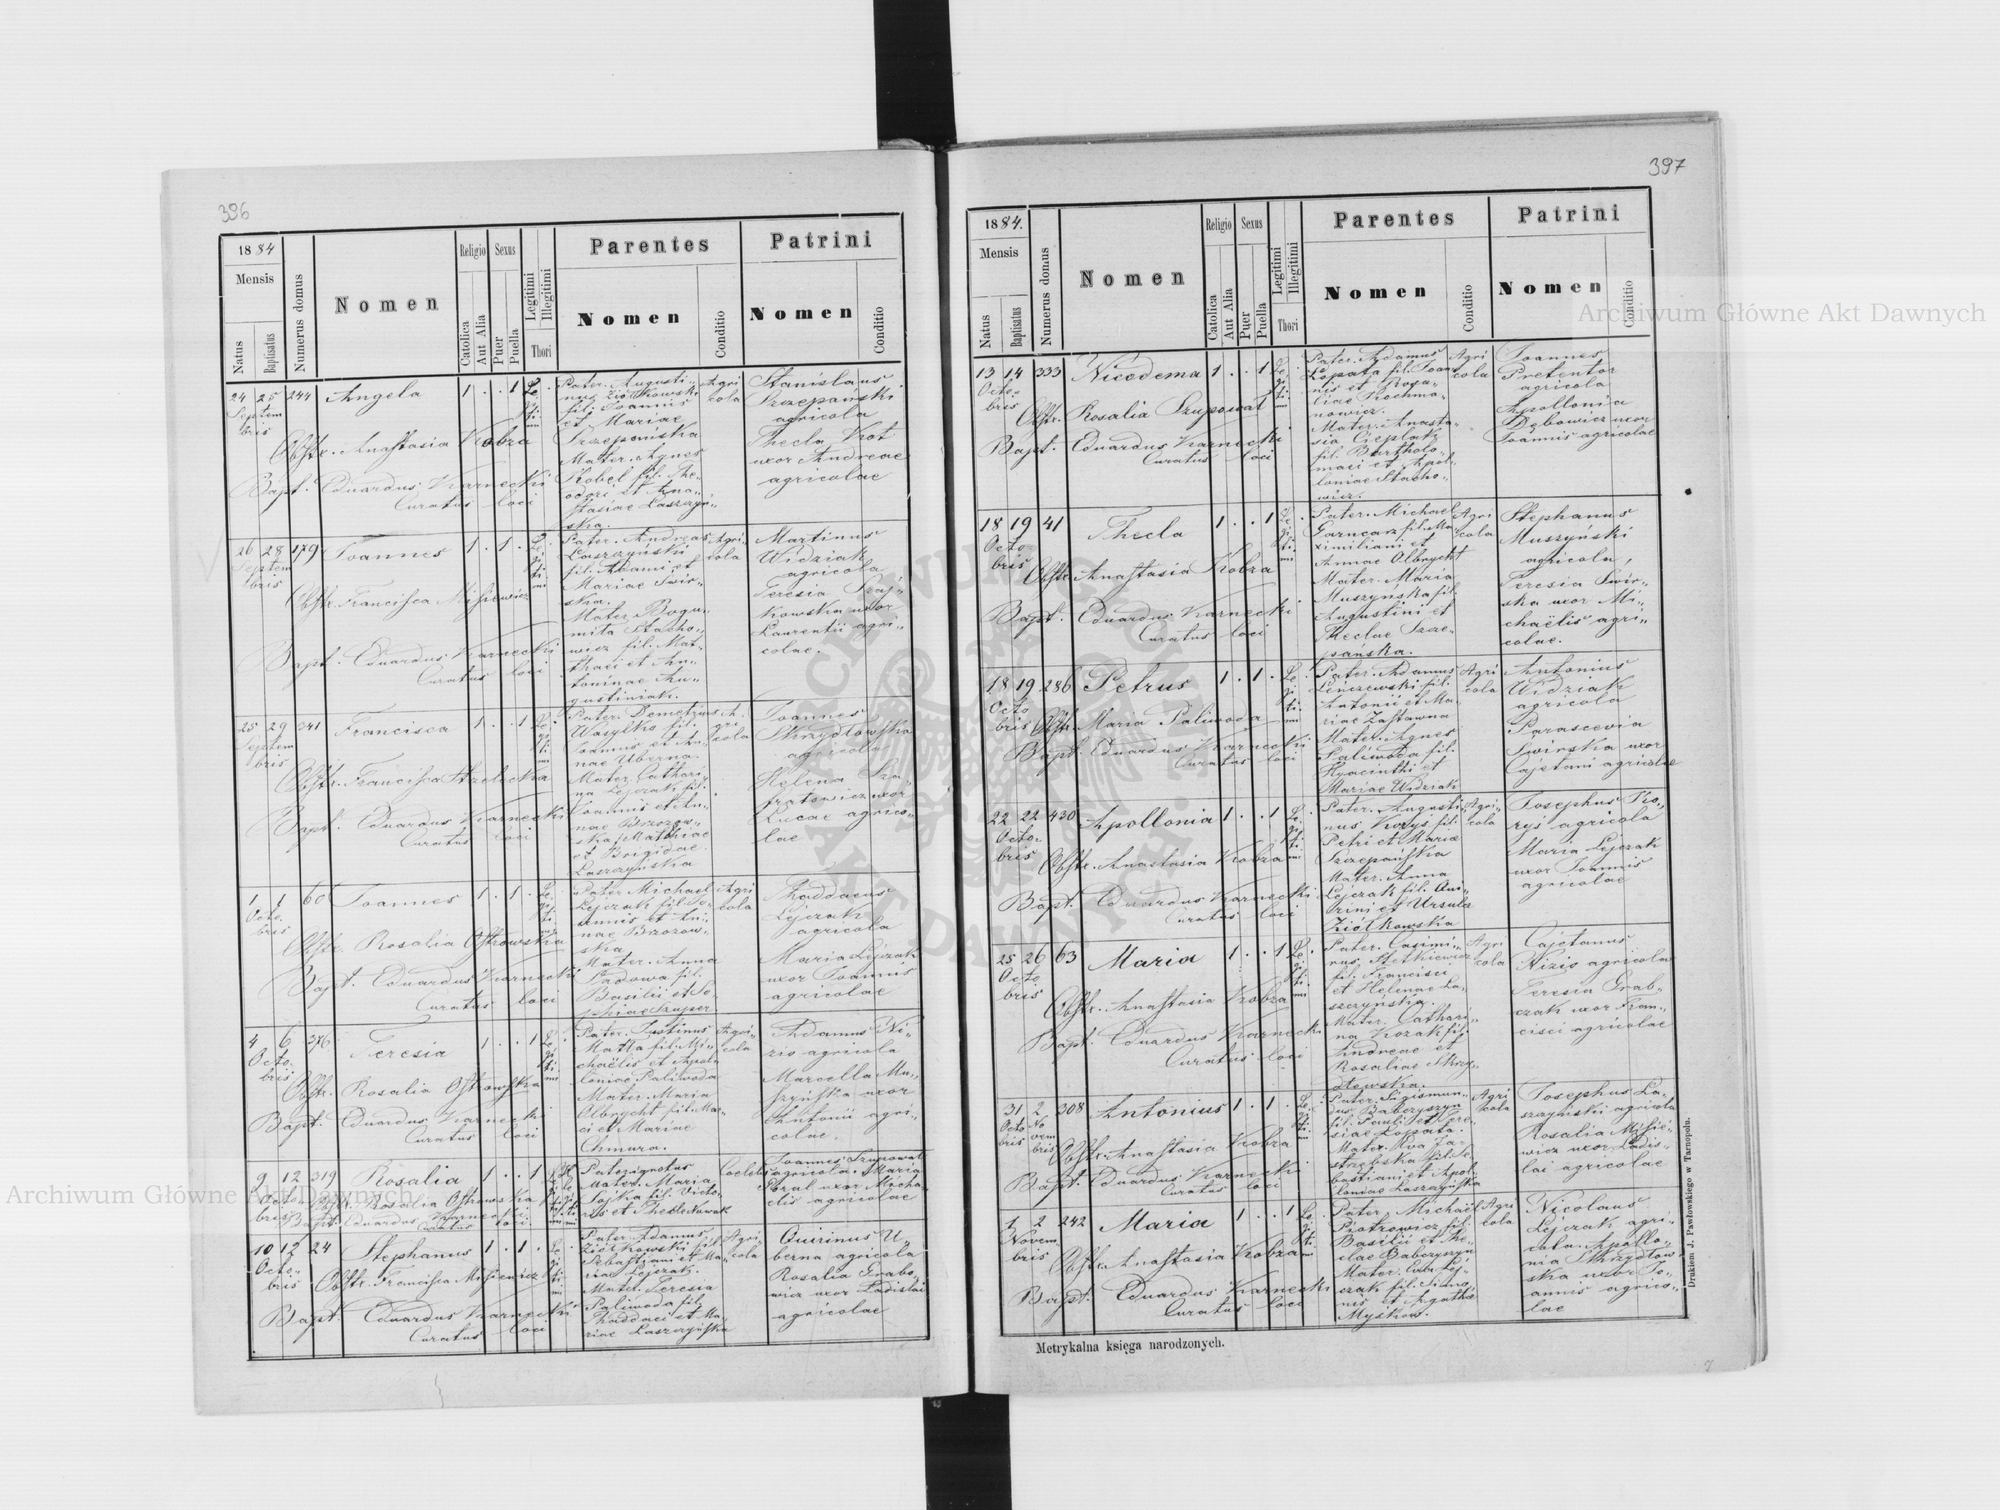 396
1884
Mensis
Natus
Baptisatus
Numerus domus
Nomen
Religio
Catolica
Aut Alia
Sexus
Puer
Puella
Legitimi
Illegitimi
Thori
Parentes
Nomen
Conditio
Patrini
Nomen
Conditio
24 25 244 Angela 1 . . 1
Septem
bris
Obstr. Anastasia Kobza
Bapt. Eduardus Karnecki
Curatus loci
Le
gi
ti
mi
Pater. Augusti-
nus Ziółkowski
fil. Joannis
et Mariae
Szczepańska
Mater. Agnes
Kobel fil. The-
odori et Ana-
stasiae Laszczyń-
ska.
Agri
cola
Stanislaus
Szczepański
agricola
Thecla Kot
uxor Andreae
agricolae
26 28 179 Joannes 1 . 1 .
Septem
bris
Obstr. Francisca Misiewicz
Bapt. Eduardus Karnecki
Curatus loci
Le
gi
ti
mi
Pater. Andreas
Laszczyński
fil. Adami et
Mariae Swir-
ska.
Mater. Bogu-
miła Stacho-
wicz fil. Mat-
thaei et An-
toninae Au-
gustiniak.
Agri-
cola
Martinus
Widziak
agricola
Teresia Szaj-
kowska uxor
Laurentii agri-
colae.
25 29 341 Francisca 1 . . 1
Septem
bris
Obstr. Francisca Strzelecka
Bapt. Eduardus Karnecki
Curatus loci
Le
gi
ti
mi
Pater. Demetrius
Wasylko fil.
Joannis et An-
nae Uberna.
Mater. Cathari-
na Lejczak fil.
Joannis et An-
nae Brzozow-
ska, Mathiae
et Brigidae
Laszczyńska
A-
gri
cola
Joannes
Skrzydłowska
agricola
Helena Sza-
fratowicz uxor
Lucae agrico-
lae
1 1 60 Joannes 1 . 1 .
Octo-
bris
Obstr. Rosalia Ostrowska
Bapt. Eduardus Karnecki
Curatus loci
Le
gi
ti
mi
Pater Michael
Lejczak fil. Jo-
annis et An-
nae Brzozow-
ska
Mater. Anna
Sadowa fil.
Basilii et So-
phiae Szuper
Agri
cola
Thaddaeus
Lejczak
agricola
Maria Lejczak
uxor Joannis
agricolae
4 6 376 Teresia 1 . . 1
Octo-
bris
Obstr. Rosalia Ostrowska
Bapt. Eduardus Karnecki
Curatus loci
Le
gi
ti
mi
Pater. Justinus
Matla fil. Mi-
chaëlis et Apol-
loniae Paliwoda
Mater. Maria
Olbrycht fil. Mar-
ci et Mariae
Chmura.
Agri-
cola
Adamus Ni-
zio agricola
Marcella Mu-
szyńska uxor
Antonii agri-
colae.
9 12 319 Rosalia 1 . . 1
Octo-
bris
Obstr. Rosalia Ostrowska
Bapt. Eduardus Karnecki
Curatus loci
Pater ignotus
Mater. Maria
Sojka fil. Victo-
ris et Theclae Nowak
Coelebs
Joannes Szupowat
agricola. Maria
Góral uxor Micha-
elis agricolae
10 12 24 Stephanus 1 . 1 .
Octo-
bris
Obstr. Francisca Misiewicz
Bapt. Eduardus Karnecki
Curatus loci
Le
gi
ti
mi
Pater. Adamus
Ziółkowski fil.
Sebastiani et Ma-
riae Lejczak.
Mater. Teresia
Paliwoda fil.
Thaddaei et Ma-
riae Laszczyńska
Agri
cola
Quirinus U-
berna agricola
Rosalia Grabo-
wicz uxor Ladislai
agricolae
397
1884.
Mensis
Natus
Baptisatus
Numerus domus
Nomen
Religio
Catolica
Aut Alia
Sexus
Puer
Puella
Legitimi
Illegitimi
Thori
Parentes
Nomen
Conditio
Patrini
Nomen
Conditio
13 14 333 Nicodema 1 . . 1
Octo-
bris
Obstr. Rosalia Szupowat
Bapt. Eduardus Karnecki
Curatus loci
Le
gi
ti
mi
Pater. Adamus
Łopata fil. Joan-
nis et Roza-
liae Prochma-
nowicz.
Mater. Anasta-
sia Cieplak
fil. Bartholo-
maei et Apol-
loniae Stacho-
wicz.
Agri
cola
Joannes
Pretentor
agricola
Apollonia
Dębowicz uxor
Joannis agricolae
18 19 41 Thecla 1 . . 1
Octo-
bris
Obstr. Anastasia Kobza
Bapt. Eduardus Karnecki
Curatus loci
Le
gi
ti
mi
Pater. Michael
Garncarz fil. Ma-
ximiliani et
Annae Olbrycht
Mater. Maria
Muszyńska fil.
Augustini et
Theclae Szcze-
pańska.
Agri
cola
Stephanus
Muszyński
agricola,
Teresia Swir-
ska uxor Mi-
chaëlis agri-
colae.
18 19 286 Petrus 1 . 1 .
Octo
bris
Obstr. Maria Paliwoda
Bapt. Eduardus Karnecki
Curatus loci
Le
gi
ti
mi
Pater. Adamus
Lenczewski fil.
Antonii et Ma-
riae Zastawna
Mater. Agnes
Paliwoda fil.
Hyacinthi et
Mariae Widziak
Agri
cola
Antonius
Widziak
agricola
Parascevia
Swirska uxor
Cajetani agricolae
22 22 430 Apollonia 1 . . 1
Octo-
bris
Obstr. Anastasia Kobza
Bapt. Eduardus Karnecki
Curatus loci
Le
gi
ti
mi
Pater. Augusti-
nus Koryś fil.
Petri et Mariae
Szczepańska
Mater. Anna
Lejczak fil. Qui-
rini et Ursulae
Ziółkowska
Agri-
cola
Josephus Ko-
ryś agricola
Maria Lejczak
uxor Joannis
agricolae
25 26 63 Maria 1 . . 1
Octo
bris
Obstr. Anastasia Kobza
Bapt. Eduardus Karnecki
Curatus loci
Le
gi
ti
mi
Pater. Casimi-
rus Stetkiewicz
fil. Francisci
et Helenae La-
szczyńska.
Mater. Cathari-
na Kozak fil.
Andreae et
Rosaliae Skrzy-
dlewska.
Agri
cola
Cajetanus
Nizio agricola
Teresia Grab-
czak uxor Fran-
cisci agricolae
31 2 308 Antonius 1 . 1 .
Octo
bris
No
vem
bris
Obstr. Anastasia Kobza
Bapt. Eduardus Karnecki
Curatus loci
Le
gi
ti
mi
Pater. Sigismun-
dus Babczyszyn
fil. Pauli et There-
siae Łopata.
Mater. Eva Ja-
strzębska fil. Se-
bastiani et Apol-
loniae Laszczyńska
Agri
cola
Josephus La-
szczyński agricola
Rosalia Misie-
wicz uxor Ladis-
lai agricolae
1 2 242 Maria 1 . . 1
Novem
bris
Obstr. Anastasia Kobza
Bapt. Eduardus Karnecki
Curatus loci
Le
gi
ti
mi
Pater. Michaël
Piotrowicz fil.
Basilii et The-
clae Babczyszyn
Mater. Eva Lej-
czak fil. Simo-
nis et Agathae
Myśków.
Agri
cola
Nicolaus
Lejczak agri-
cola. Apollo-
nia Skrzydłow-
ska uxor Jo-
annis agrico-
lae
Metrykalna księga narodzonych.
Drukiem J. Pawłowskiego w Tarnopolu.
Archiwum Główne Akt Dawnych
Archiwum Główne Akt Dawnych
ARCHIWUM GŁÓWNE
AKT DAWNYCH